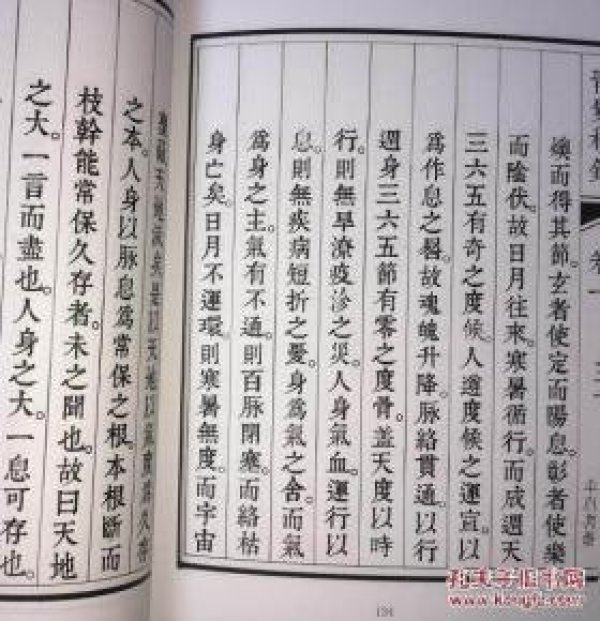 燠而得其節。玄者使定而陽息。彰者使樂
而陰伏。故日月往來。寒暑循行。而成週天
三六五有奇之度候。人遵度候之運宜。以
爲作息之晷。故魂魄升降。脉絡貫通。以行
週身三六五節有零之度骨。蓋天度以時
行。則無旱潦疫沴之災。人身氣血。運行以
息。則無疾病短折之憂。身爲氣之舍。而氣
爲身之主。氣有不通。則百脉閉塞。而絡枯
身亡矣。日月不運環。則寒暑無度。而宇宙
天地 矣是以天地以氣 久
之本。人身以脉息爲常保之根。本根斷而
枝幹能常保久存者。未之聞也。故曰天地
之大。一言而盡也。人身之大。一息可存也。
卷一
134
孔夫子旧书网